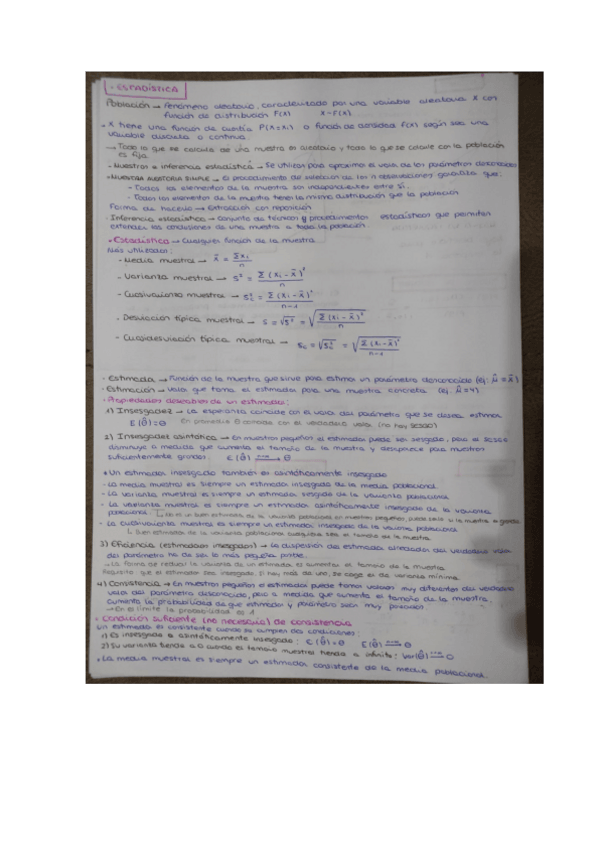 - ESTADÍSTICA
Población → Fenómeno aleatorio, caracterizado por una variable aleatoria X con
función de distribución F(x) X~F(x)
- X tiene una función de cuantía P(X=xi) o función de densidad f(x) según sea una
variable discreta o continua.
→ Todo lo que se calcula de una muestra es aleatorio y todo lo que se calcule con la población
es fijo.
- Muestreo e inferencia estadística → Se utilizan para aproximar el valor de los parámetros desconocidos
- MUESTRA ALEATORIA SIMPLE → El procedimiento de selección de las n observaciones garantiza que:
- Todos los elementos de la muestra son independientes entre sí.
- Todos los elementos de la muestra tienen la misma distribución que la población
Forma de hacerlo → Extracción con reposición
- Inferencia estadística → Conjunto de técnicas y procedimientos estadísticos que permiten
extender las conclusiones de una muestra a toda la población
* Estadístico → Cualquier función de la muestra
Más utilizados:
- Media muestral → x̄ = Σxi / n
- Varianza muestral → S² = Σ(xi - x̄)² / n
- Cuasivarianza muestral → Sc² = Σ(xi - x̄)² / n-1
- Desviación típica muestral → S = √S² = √(Σ(xi - x̄)² / n)
- Cuasidesviación típica muestral → Sc = √Sc² = √(Σ(xi - x̄)² / n-1)
- Estimador → Función de la muestra que sirve para estimar un parámetro desconocido (ej: μ̂ = x̄)
- Estimación → Valor que toma el estimador para una muestra concreta (ej: μ̂=4).
- Propiedades deseables de un estimador:
1) Insesgadez → La esperanza coincide con el valor del parámetro que se desea estimar
E(θ̂)=θ En promedio θ̂ coincide con el verdadero valor (no hay SESGO)
2) Insesgadez asintótica → En muestras pequeñas el estimador puede ser sesgado, pero el sesgo
disminuye a medida que aumenta el tamaño de la muestra y desaparece para muestras
suficientemente grandes: E(θ̂) → θ
* Un estimador insesgado también es asintóticamente insesgado
- La media muestral es siempre un estimador insesgado de la media poblacional.
- La varianza muestral es siempre un estimador sesgado de la varianza poblacional
- La varianza muestral es siempre un estimador asintóticamente insesgado de la varianza
poblacional. No es un buen estimador de la varianza poblacional en muestras pequeñas, puede serlo si la muestra es grande
- La cuasivarianza muestral es siempre un estimador insesgado de la varianza poblacional
Buen estimador de la varianza poblacional cualquiera sea el tamaño de la muestra
3) Eficiencia (estimadores insesgados) → La dispersión del estimador alrededor del verdadero valor
del parámetro ha de ser lo más pequeña posible.
→ La forma de reducir la varianza de un estimador es aumentar el tamaño de la muestra
Requisito: que el estimador sea insesgado. Si hay más de uno, se coge el de varianza mínima.
4) Consistencia → En muestras pequeñas el estimador puede tomar valores muy diferentes del verdadero
valor del parámetro desconocido, pero a medida que aumenta el tamaño de la muestra,
aumenta la probabilidad de que estimador y parámetro sean muy parecidos
→ En el límite la probabilidad es 1
* Condición suficiente (no necesaria) de consistencia
Un estimador es consistente cuando se cumplen dos condiciones:
1) Es insesgado o asintóticamente insesgado: E(θ̂)=θ E(θ̂) → θ
2) Su varianza tiende a 0 cuando el tamaño muestral tiende a infinito: Var(θ̂) → 0
* La media muestral es siempre un estimador consistente de la media poblacional.